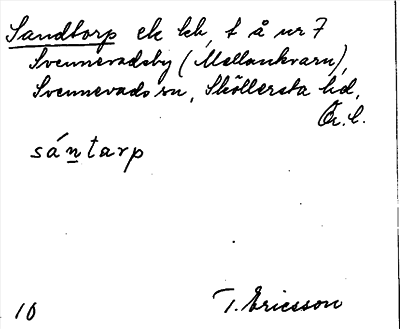 Sandtorp ek kh, f å nr 7
Svennevadsby (Mellankvarn),
Svennevads sn, Sköllersta hd,
Ör. l.
sántarp
10 T. Ericsson